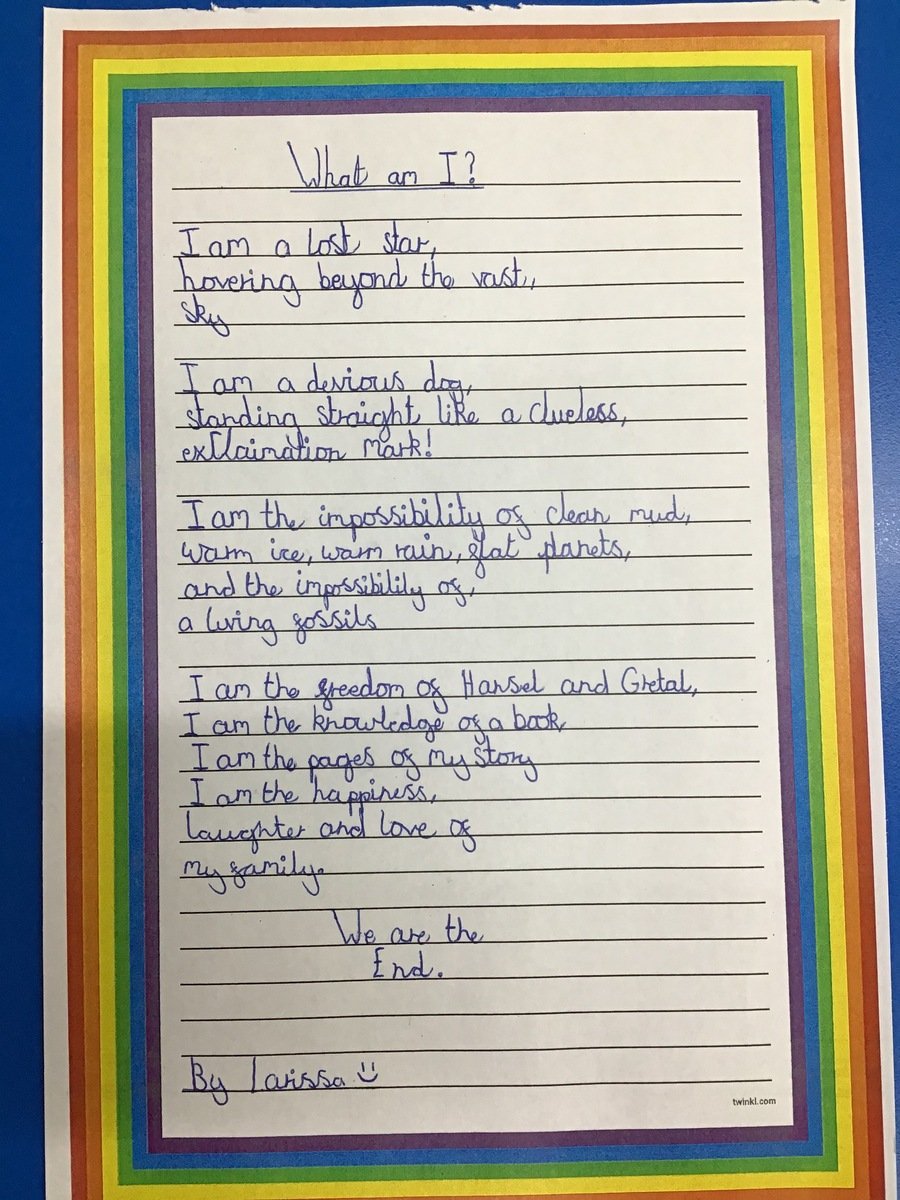 What am I?
I am a lost star,
hovering beyond the vast,,
sky
I am a devious dog,
standing straight like a clueless,
exclaimation mark!
I am the impossibility of clean mud,
warm ice, warm rain, flat planets,
and the impossibility of,
a living fossils
I am the freedom of Hansel and Gretal,
I am the knowledge of a book,
I am the pages of my story
I am the happiness,
laughter and love of
my family.
We are the
End.
By Larissa
twinkl.com